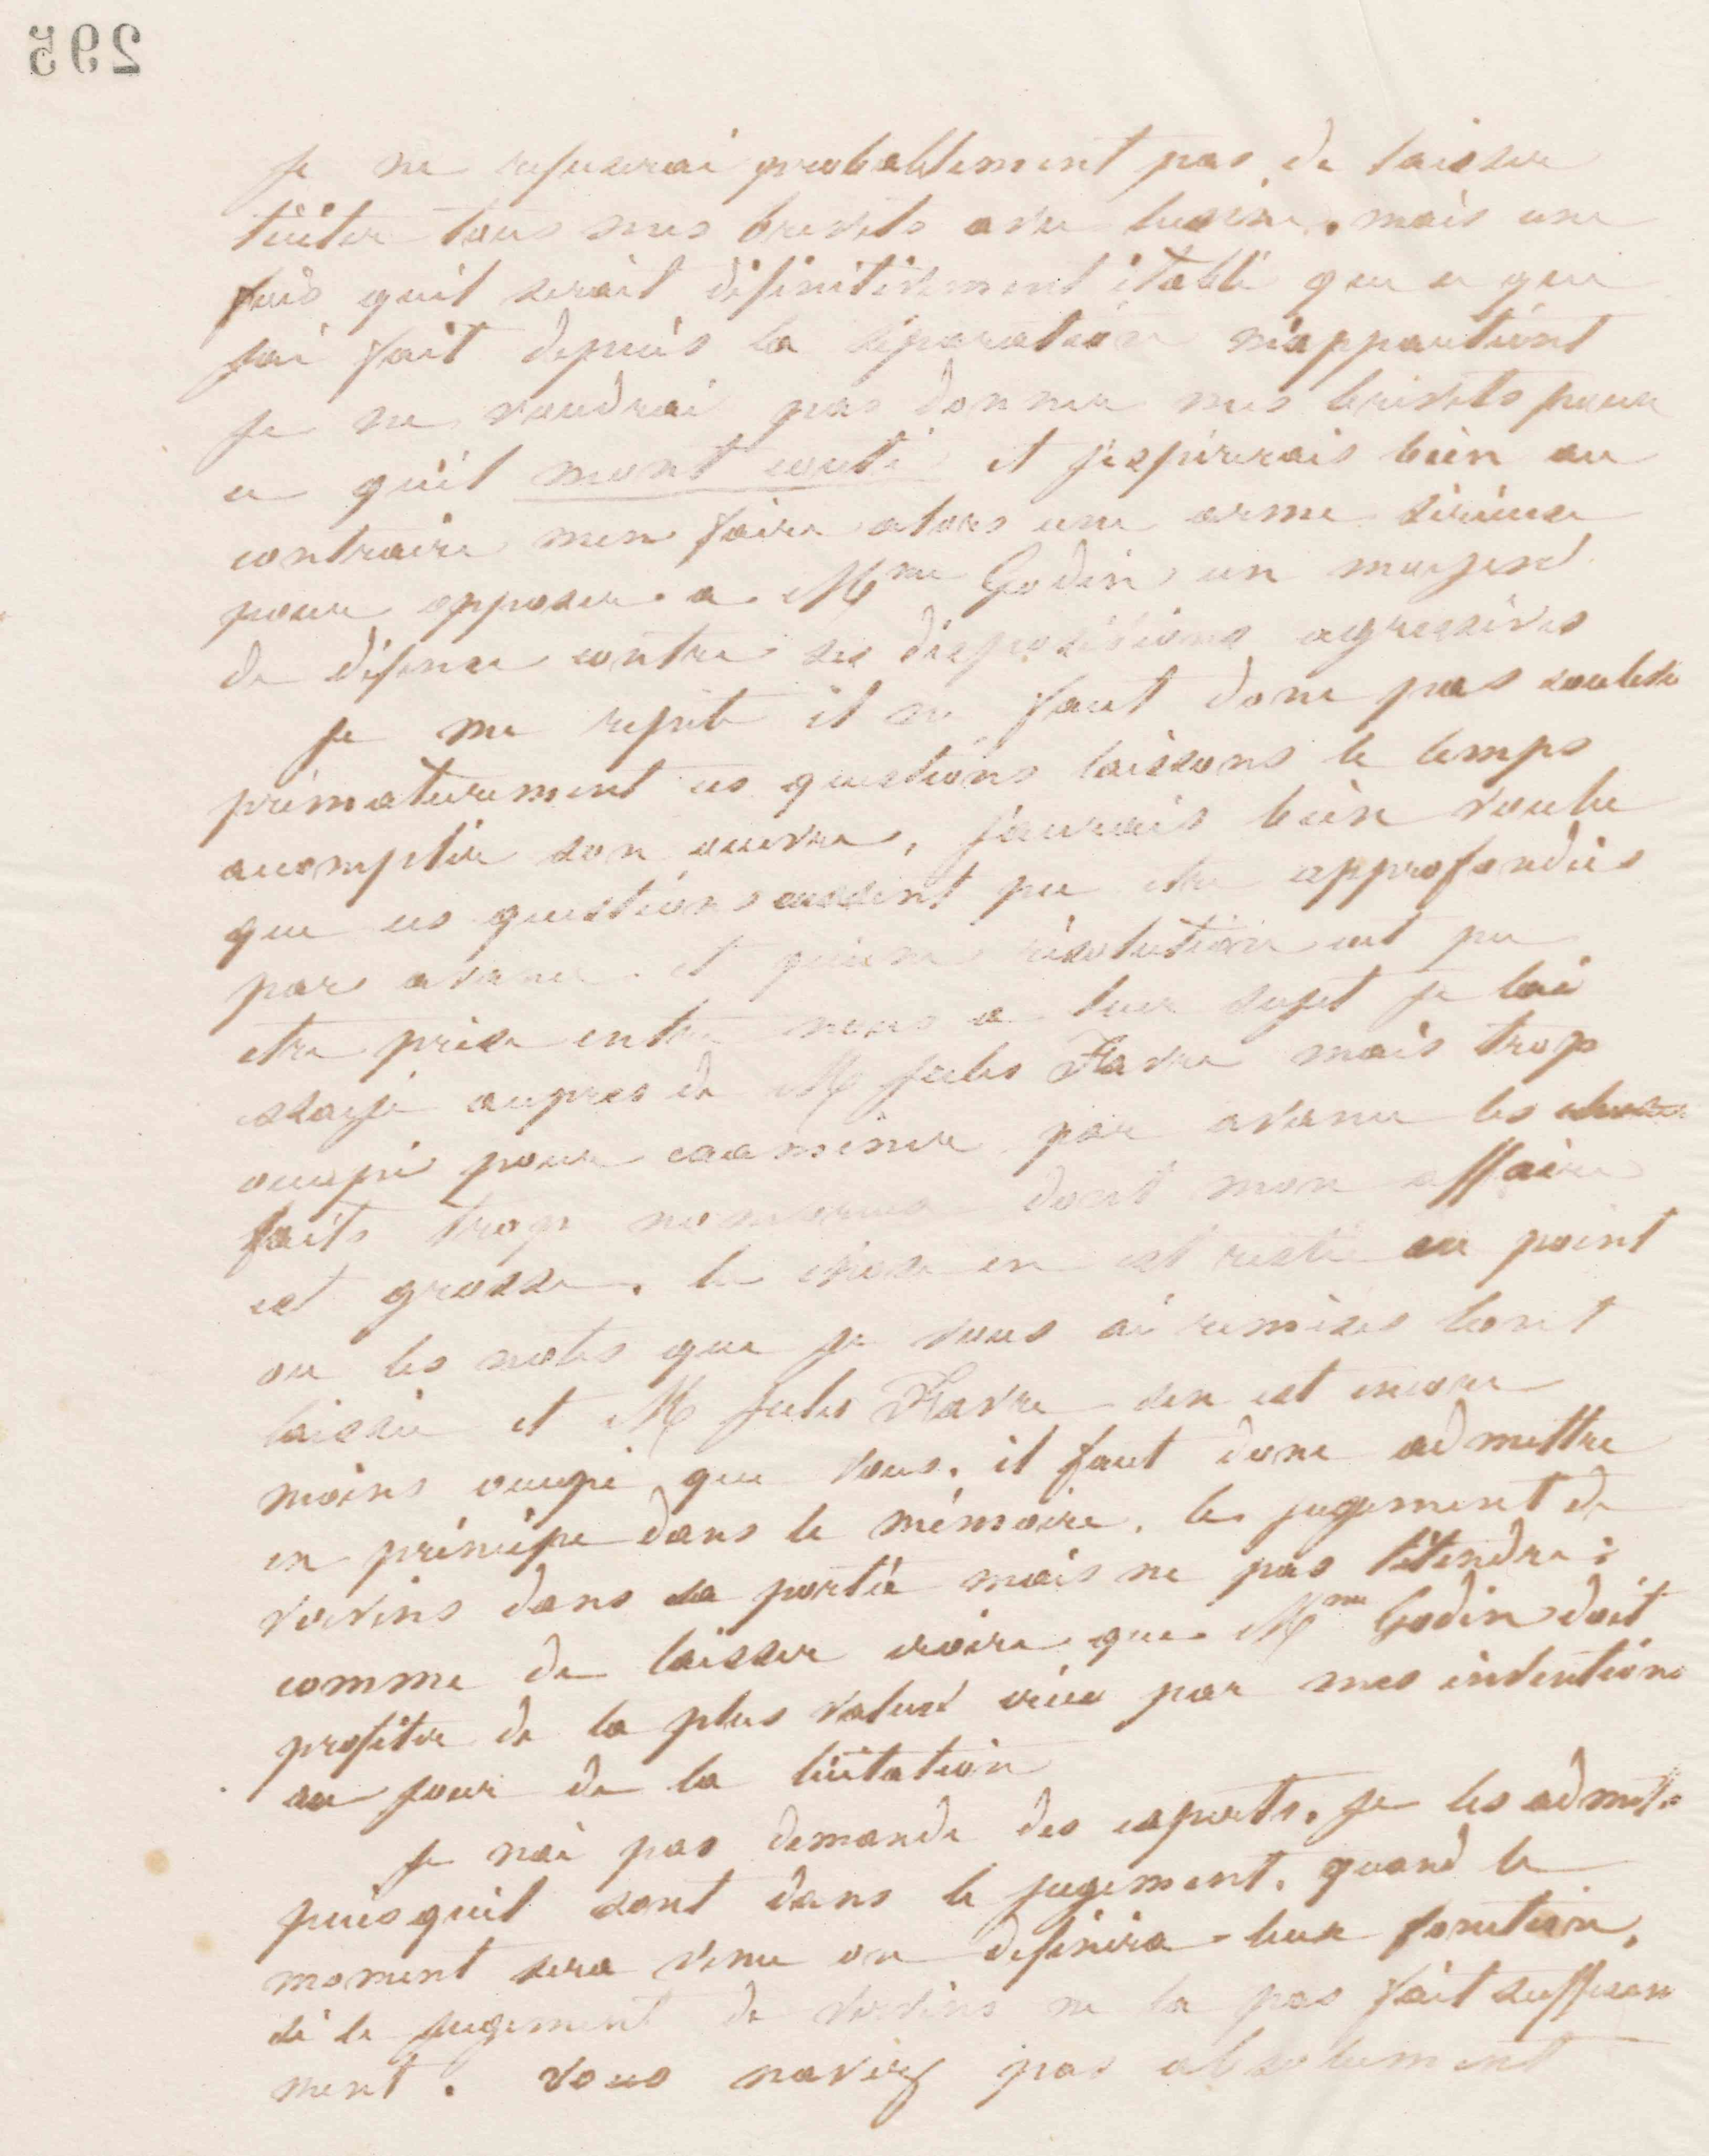 295
Je ne refuserai probablement pas de laisser
liciter tous mes brevets avec lusine, mais une
fois quil serait définitivement établi que ce que
jai fait depuis la séparation m'appartient
je ne voudrai pas donner mes brevets pour
ce quil mont couté et jespèrerais bien au
contraire men faire alors une arme sérieuse
pour opposer a Mme Godin un moyen
de défense contre ses dispositions agressives
Je me repete il ne faut donc pas soulever
prématurement ces questions laissons le temps
accomplir son œuvre, jaurais bien voulu
que ces questions eussent pu etre approfondies
par avance et quune résolution eut pu
etre prise entre nous a leur sujet je lai
essayé aupres de M Jules Favre mais trop
occupé pour examiner par avance les
faits trop nombreux dont mon affaire
est grosse, la chose en est restée au point
ou les notes que je vous ai remises lont
laissée et M Jules Favre sen est encore
moins occupé que vous. il faut donc admettre
en principe dans le mémoire, le jugement de
vervins dans sa portée mais ne pas l'étendre :
comme de laisser croire que Mme Godin doit
profiter de la plus value créée par mes inventions
au jour de la licitation
Je nai pas demandé des experts, je les admets
puisquil sont dans le jugement, quand le
moment sera venu on définira leur fonction,
si le jugement de vervins ne la pas fait suffisam
ment. vous naviez pas absolument